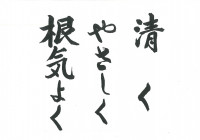 清く
やさしく
根気よく